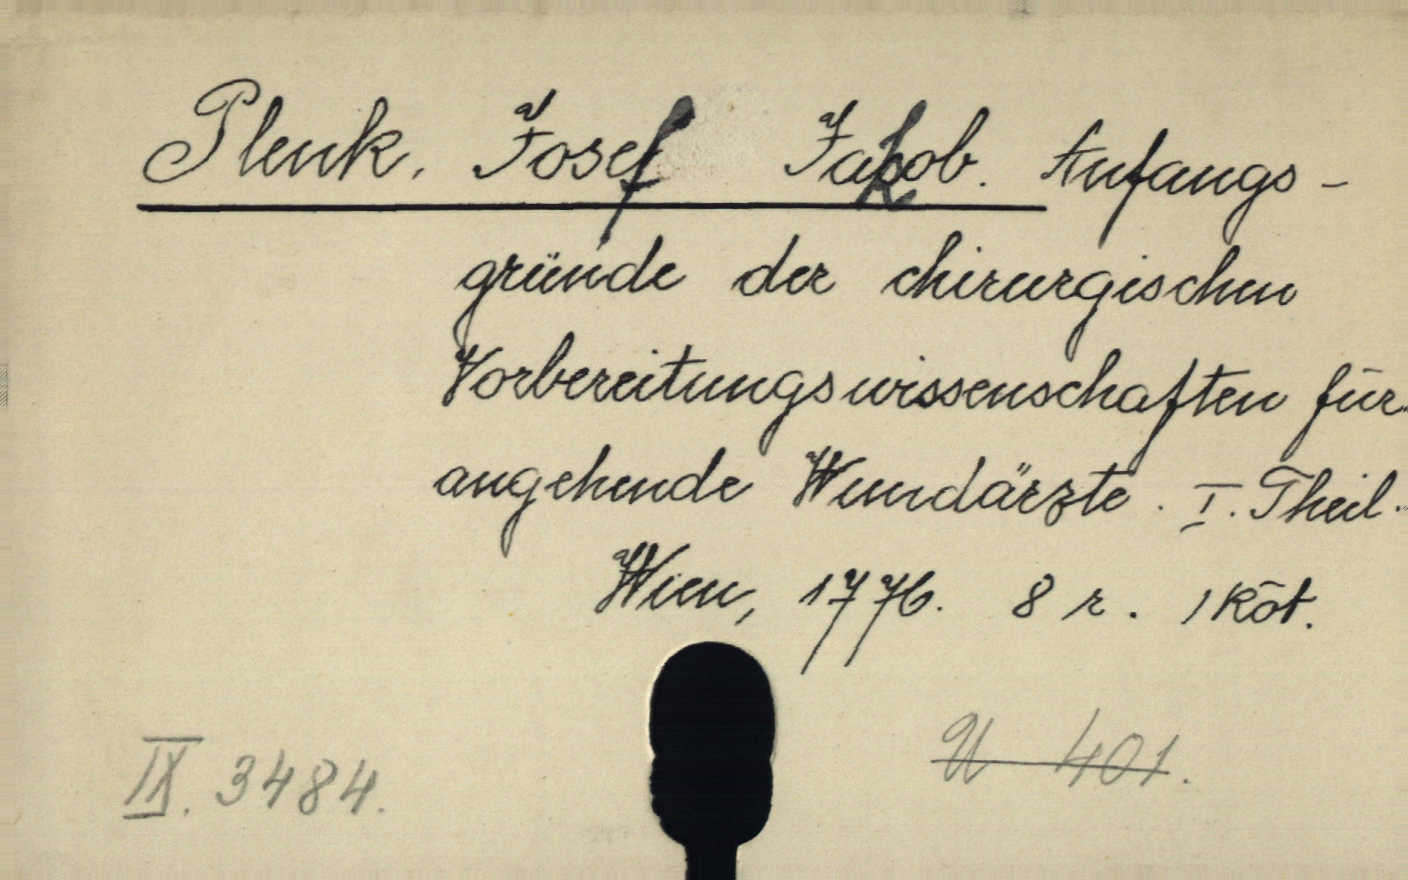 Plenk, Josef Jakob. Anfangs-
gründe der chirurgischen
Vorbereitungswissenschaften für
angehende Wundärzte. I. Theil.
Wien, 1776. 8 r. 1 Köt.
U 401.
IX. 3484.